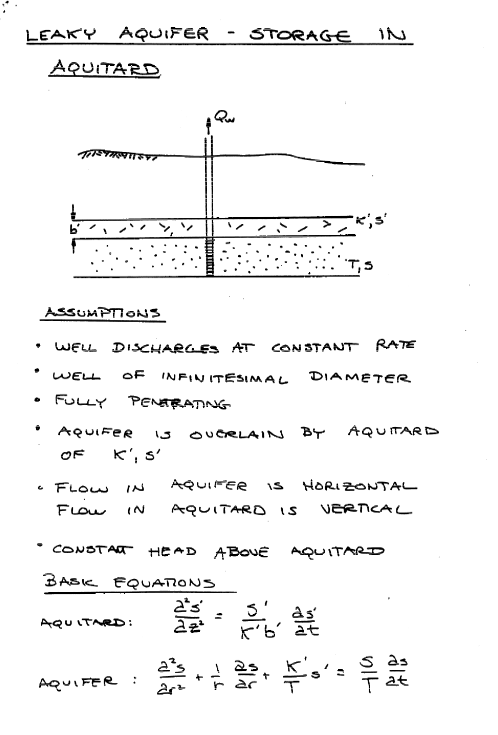 LEAKY AQUIFER - STORAGE IN
AQUITARD
Qw
b'
K', S'
T, S
ASSUMPTIONS
• WELL DISCHARGES AT CONSTANT RATE
• WELL OF INFINITESIMAL DIAMETER
• FULLY PENETRATING
• AQUIFER IS OVERLAIN BY AQUITARD
OF K', S'
• FLOW IN AQUIFER IS HORIZONTAL
FLOW IN AQUITARD IS VERTICAL
• CONSTANT HEAD ABOVE AQUITARD
BASIC EQUATIONS
AQUITARD: ∂²s'/∂z² = S'/K'b' ∂s'/∂t
AQUIFER : ∂²s/∂r² + 1/r ∂s/∂r + K'/T s' = S/T ∂s/∂t